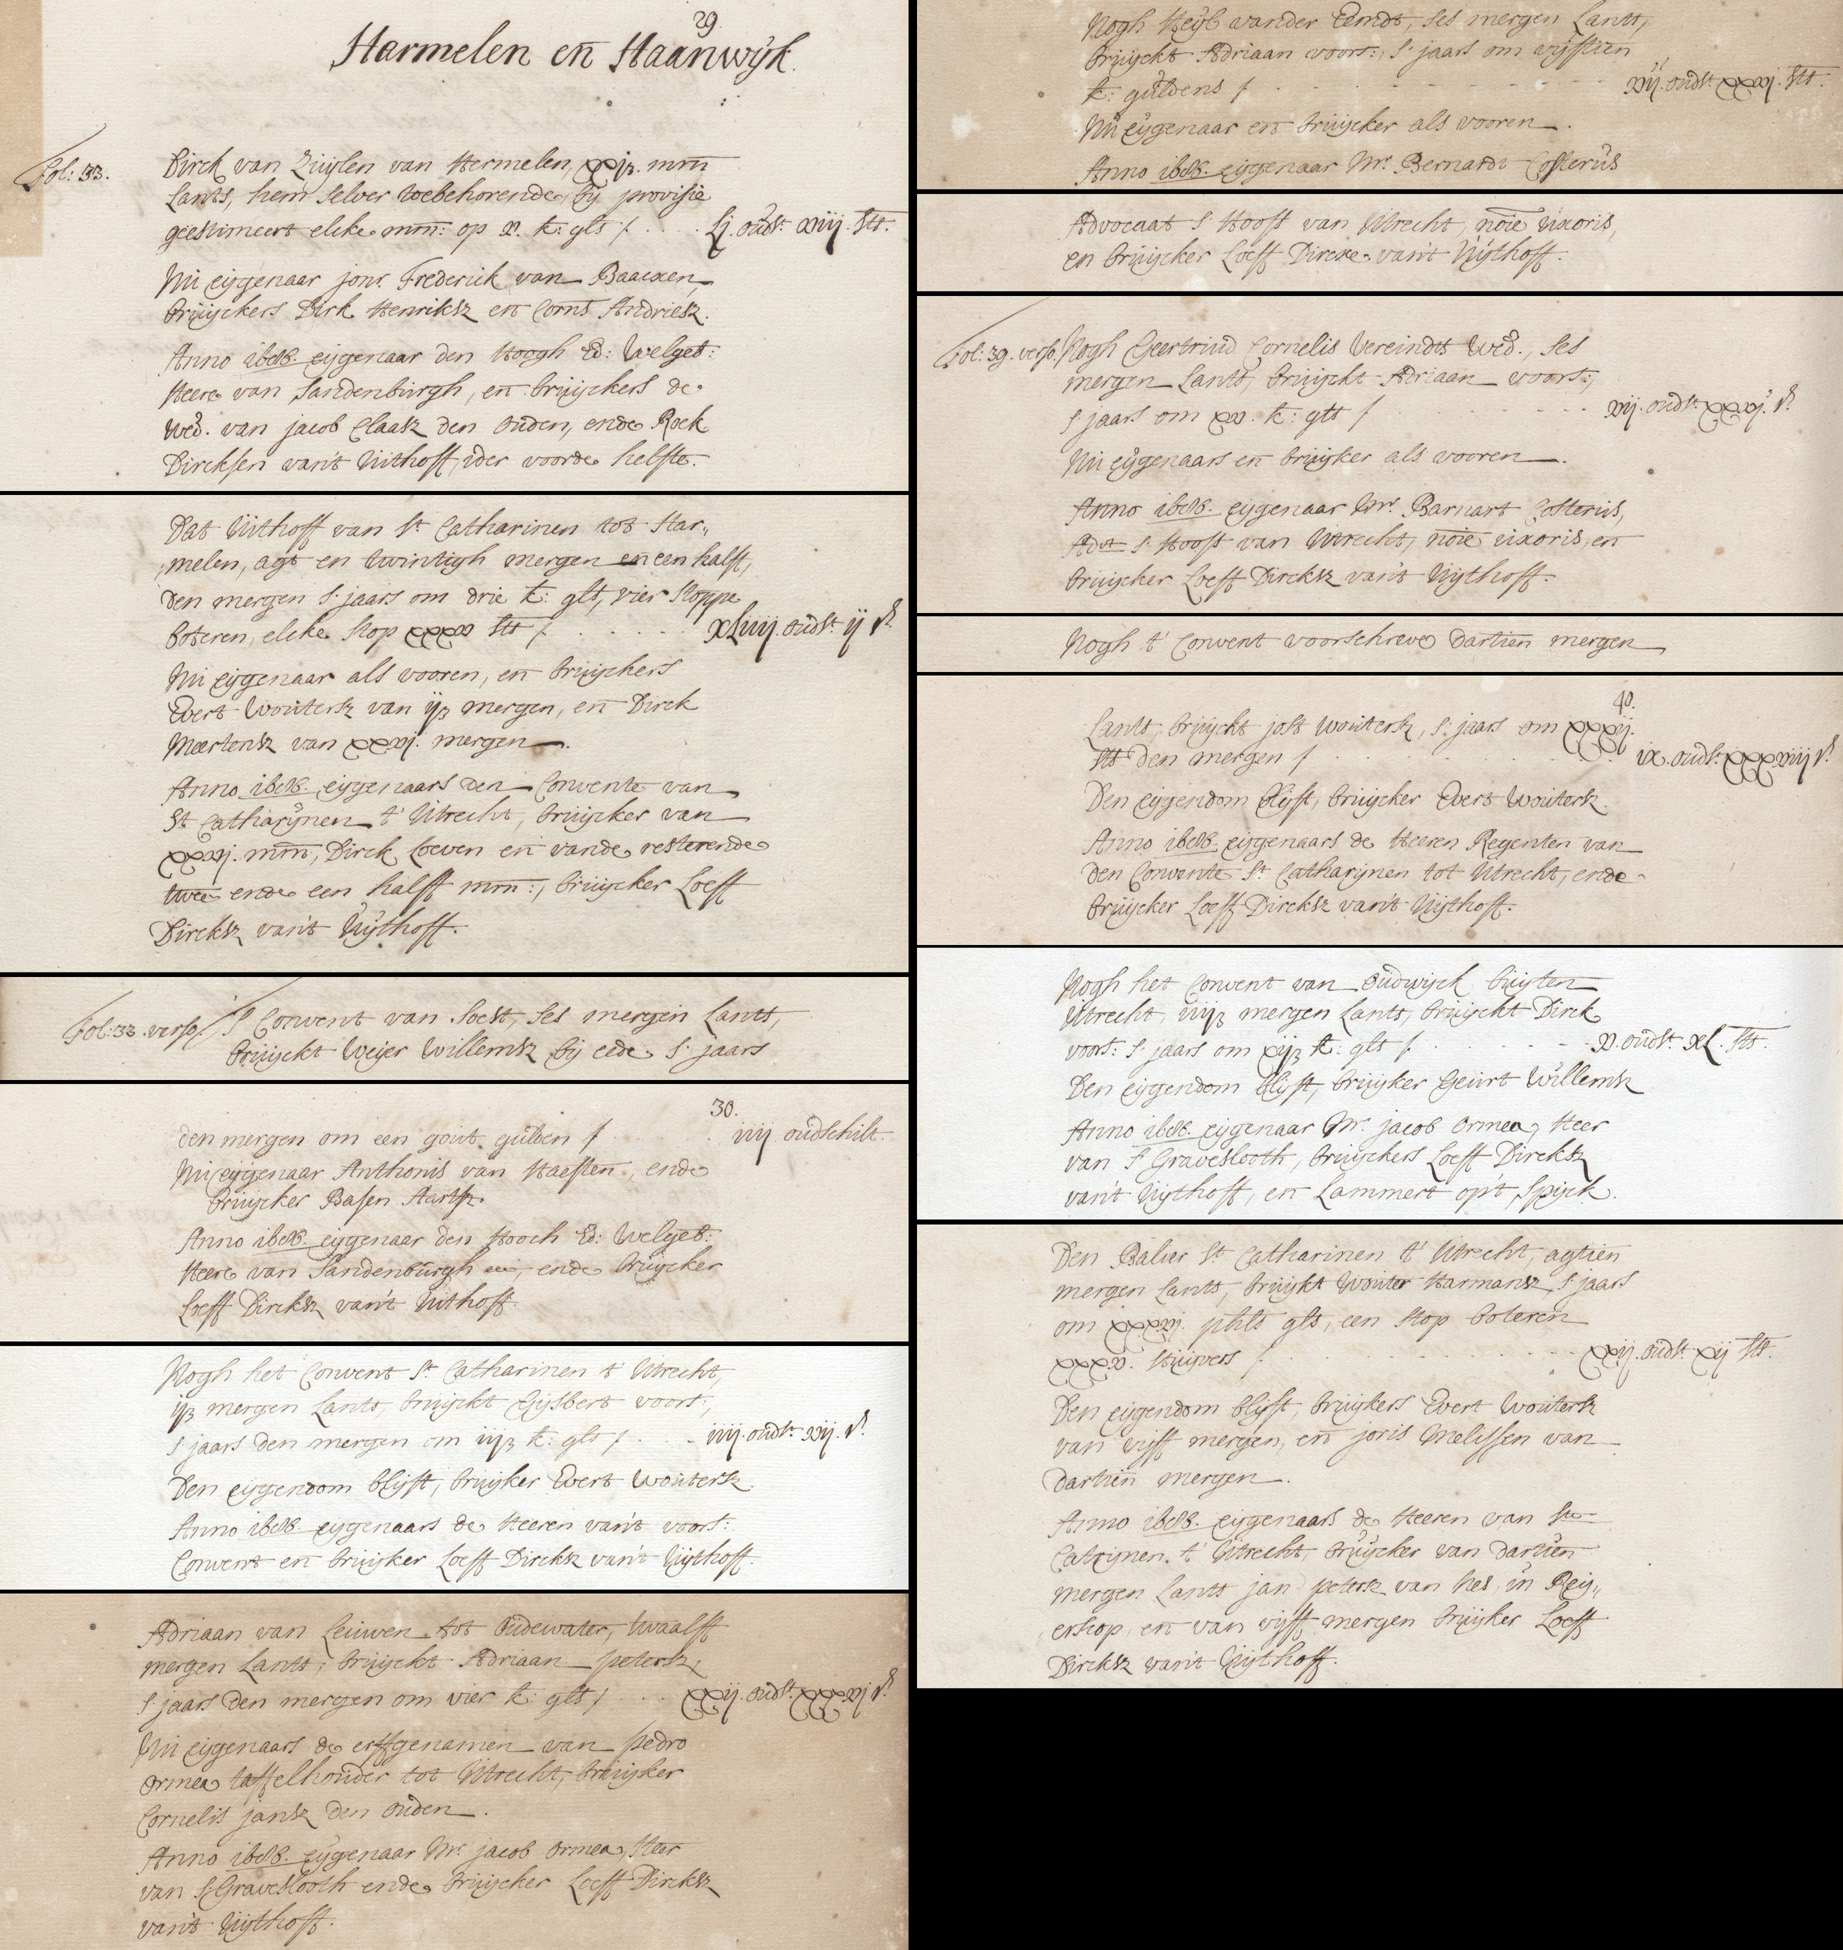 29
Harmelen en Haanwijk.
Fol: 33. Dirck van Zuijlen van Hermelen, xxjß. mrn
Lants, hem selver toebehorende, bij provisie
geestimeert elcke mrn: op v. k: gls / . . . . Lj. oudst. xviij. sts.
Nu eijgenaar jonr. Frederick van Baacxen,
bruijckers Dirk Henriksz en Corns Andriesz.
Anno 1686. eijgenaar den Hoogh Ed: Welgeb:
Heere van Sandenburgh, en bruijckers de
Wed. van jacob Claasz den Ouden, ende Roek
Dircksen van't Uithoff, ider voorde helfte.
Dat Uithoff van St Catharinen tot Har„
melen, agt en twintigh mergen en een halft,
den mergen s jaars om drie k: gls, vier stoppe
boteren, elcke stop xxxv sts / . . . . . xLiiij. oudst ij d.
Nu eijgenaar als vooren, en bruijckers
Evert Woutersz van ijß mergen, en Dirck
Meertensz van xxvj. mergen.
Anno 1686. eijgenaars den Convente van
St Catharijnen t' Utrecht, bruijcker van
xxvj. mrn, Dirck Loeven en vande resterende
twee ende een halff mrn:, bruijcker Loeff
Dircksz van't Uijthoff.
Fol: 33. verso. t' Convent van Soest, ses mergen Lants,
bruijckt Weijer Willemsz bij eede s jaars
30.
den mergen om een gout gulden / . . . iiij oudschilt.
Nu eijgenaar Anthonis van Haesten, ende
bruijcker Basen Aartsz.
Anno 1686. eijgenaar den Hooch Ed: Welgeb:
Heere van Sandenburgh, ende bruijcker
Loeff Dircksz van't Uithoff.
Nogh het Convent St Catharinen t' Utrecht,
ijß mergen Lants bruijckt Gijsbert voors:,
s jaars den mergen om iijß k: gls / . . . iiij. oudst. xvij. d.
Den eijgendom blijft, bruijker Evert Woutersz.
Anno 1686. eijgenaars de Heeren van't voors:
Convent en bruijker Loeff Dircksz van't Uijthoff.
Adriaan van Leuwen tot Oudewater, twaalff
mergen Lants, bruijckt Adriaan petersz,
s jaars den mergen om vier k: gls / . . . xxij. oudst. xxxvj d.
Nu eijgenaars de erffgenamen van pedro
Ormea taffelhouder tot Utrecht, bruijker
Cornelis jansz den Ouden.
Anno 1686. eijgenaar Mr. jacob Ormea, Heer
van s Gravesloth ende bruijcker Loeff Dircksz
van't Uijthoff.
Nogh Heijl vander Eemdt, ses mergen Lants,
bruijckt Adriaan voors:, s jaars om vijftien
k: guldens / . . . . . . . vij. oudst. xxvj. sts.
Nu eijgenaar en bruijcker als vooren.
Anno 1686. eijgenaar Mr. Bernardt Costerus
Advocaat s Hoofs van Utrecht, noie Uxoris,
en bruijcker Loeff Dircxe van't Uijthoff.
Fol: 39. verso. Nogh Geertruid Cornelis Vereindts Wed., ses
mergen Lants, bruijckt Adriaan voors:,
s jaars om xv. k: gls / . . . . . . vij. oudst xxvj. d.
Nu eijgenaars en bruijker als vooren.
Anno 1686. eijgenaar Mr. Barnart Costerus,
Advt s Hoofs van Utrecht, noie uxoris, en
bruijcker Loeff Dircksz van't Uijthoff.
Nogh t' Convent voorschreve dartien mergen
40.
Lants, bruijckt jost Woutersz, s jaars om xxxij.
sts den mergen / . . . . . . ix. oudst. xxxviij d.
Den eijgendom blijft, bruijcker Evert Woutersz.
Anno 1686. eijgenaars de Heeren Regenten van
den Convente St Catharijnen tot Utrecht, ende
bruijcker Loeff Dircksz van't Uijthoff.
Nogh het Convent van Oudwijck buijten
Utrecht, iiijß mergen Lants, bruijckt Dirck
voors: s jaars om xijß k: gls / . . . . . v. oudst. xL. sts.
Den eijgendom blijft, bruijker Geurt Willemsz
Anno 1686. eijgenaar Mr. jacob Ormea, Heer
van s Graveslooth, bruijckers Loeff Dircksz
van't Uijthoff, en Lammert op't Spijck.
Den Balier St Catharinen t' Utrecht, agtien
mergen Lants, bruijkt Wouter Harmansz, s jaars
om xxxvij. phls gls, een stop boteren
xxxv. stuijvers / . . . . . . xxij. oudst. xij sts.
Den eijgendom blijft, bruijkers Evert Woutersz
van vijff mergen, en joris Melissen van
dartien mergen.
Anno 1686. eijgenaars de Heeren van Ste
Catrijnen t' Utrecht, bruijcker van dartien
mergen Lants jan petersz van hes, in Reij„
erskop, en van vijff mergen bruijker Loeff
Dircksz van't Uijthoff.